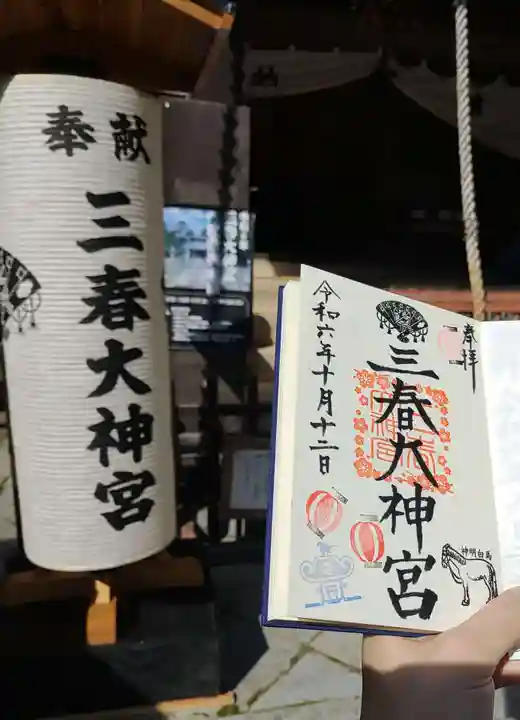 奉献
三春大神宮
奉拝
三春大神宮
令和六年十月十二日
神明白馬